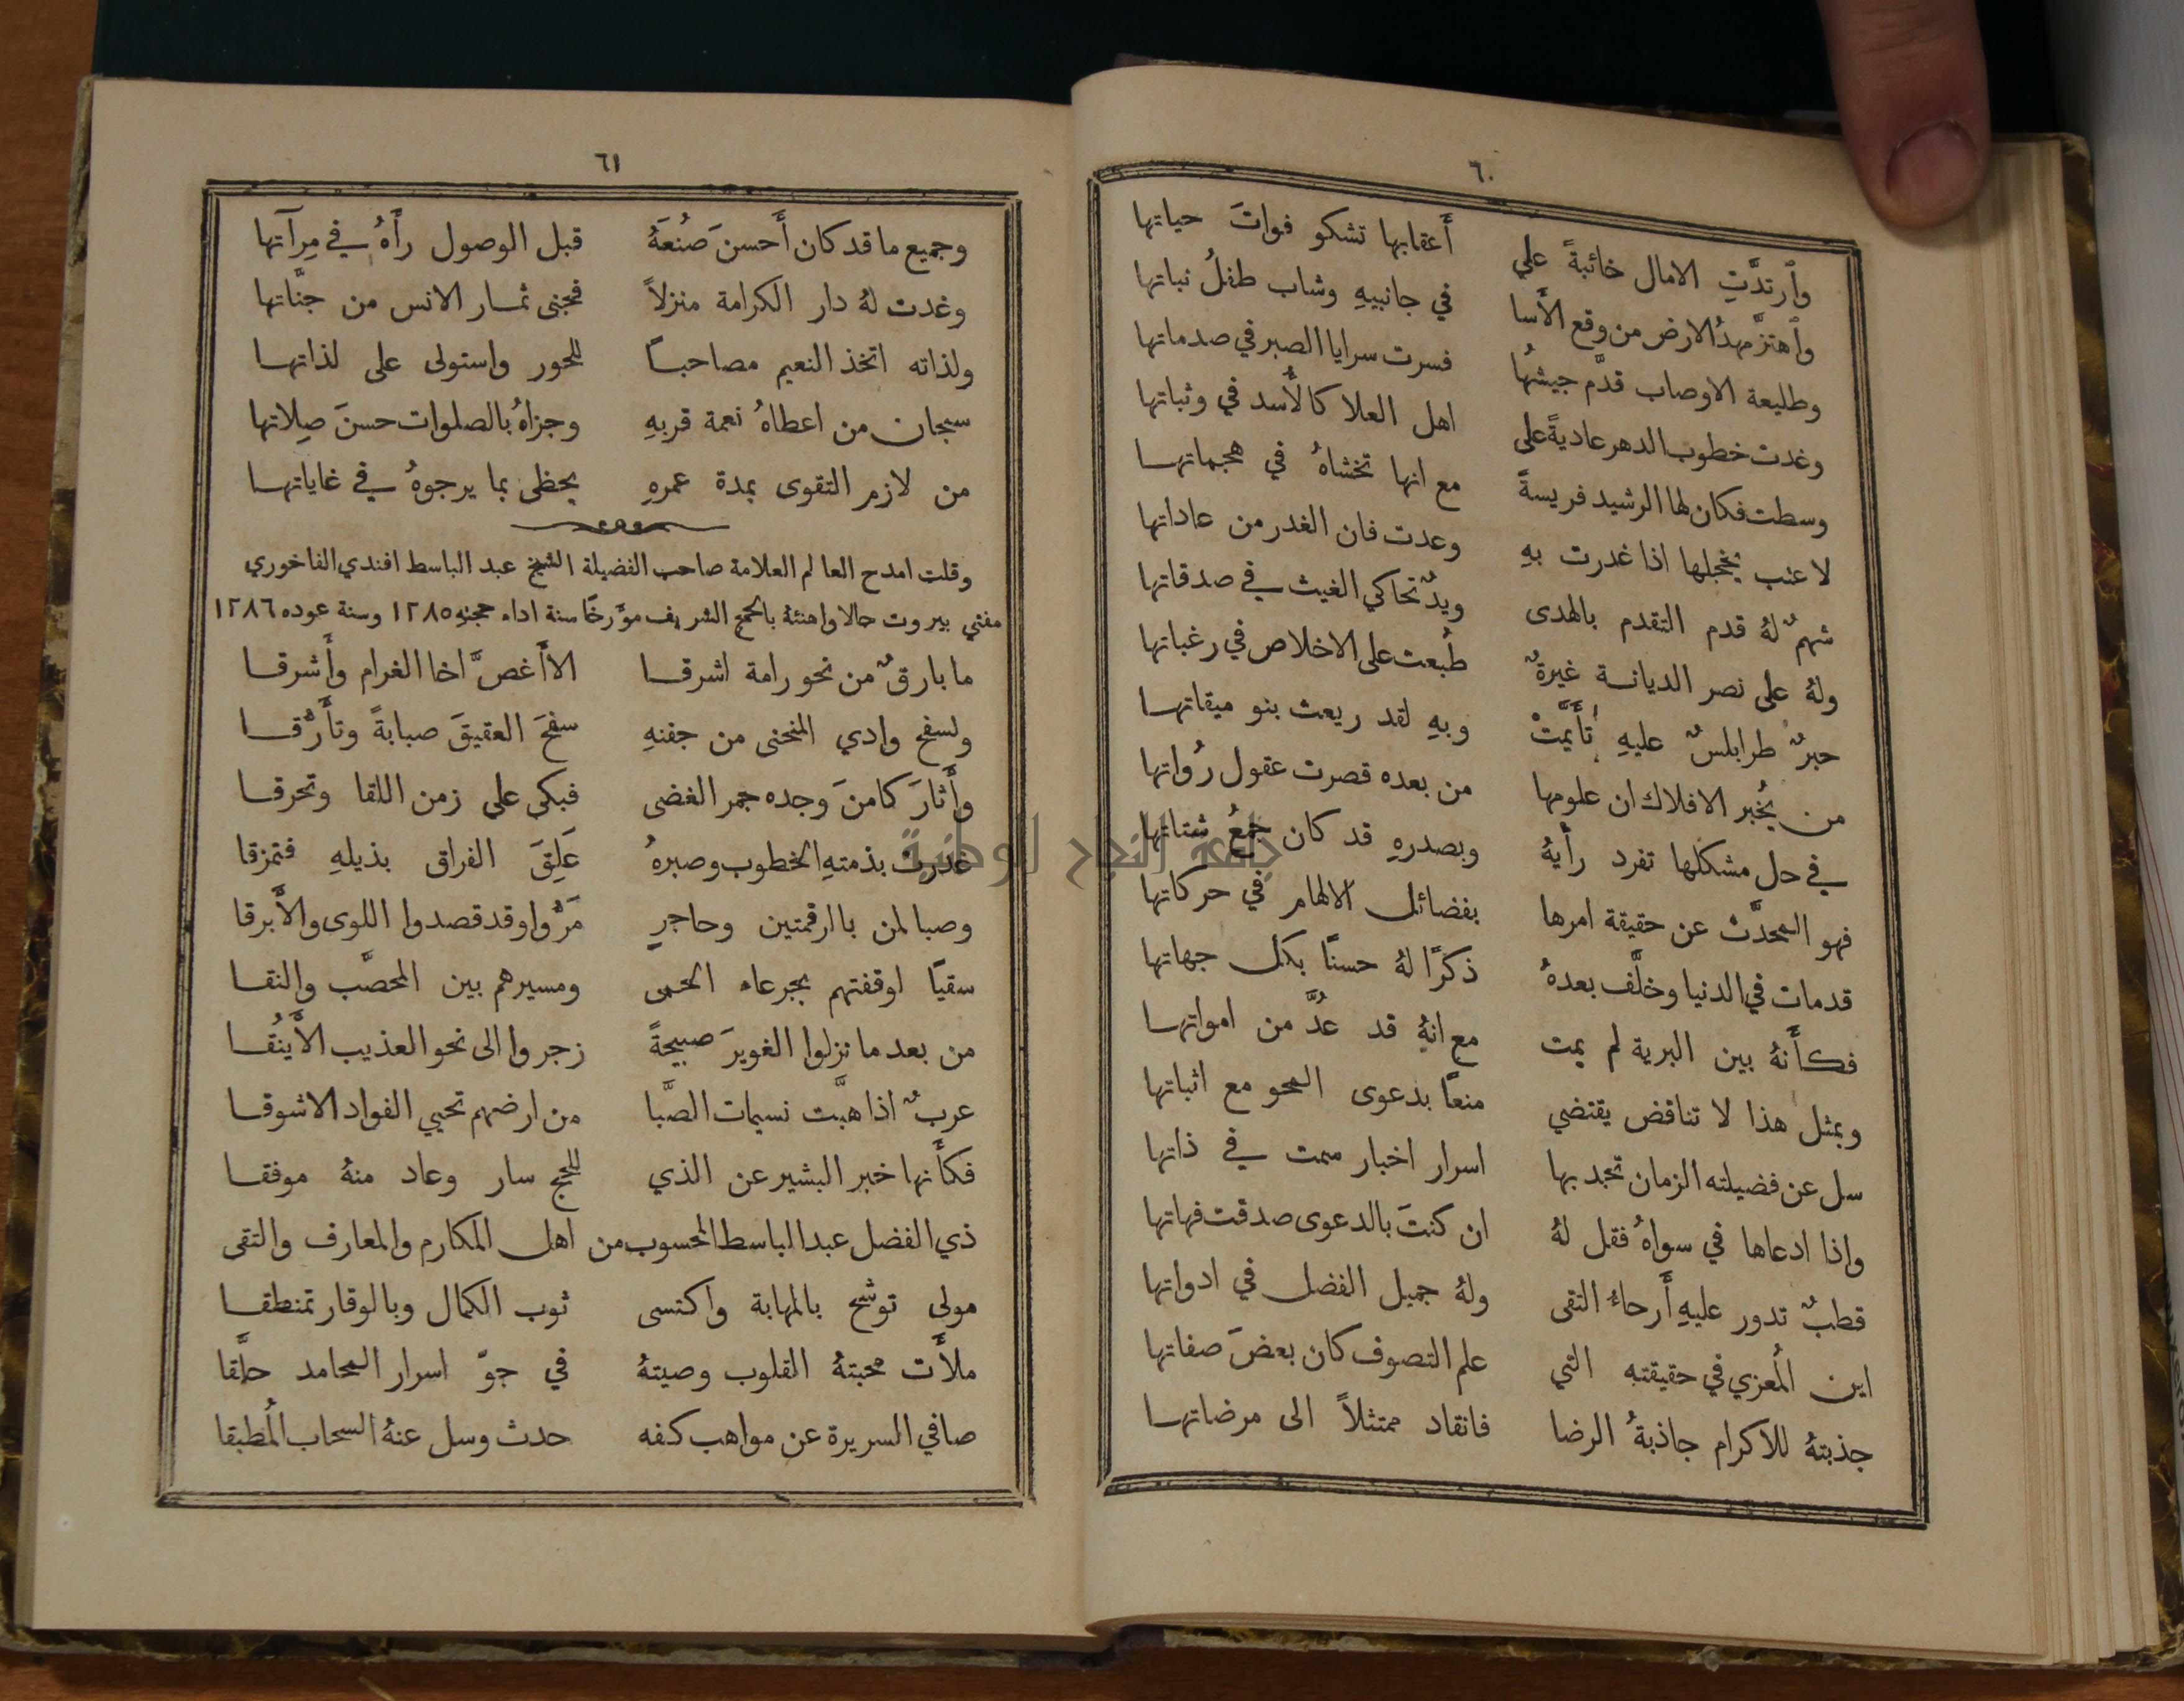 ٦٠
وأرتدَّتِ الامال خائبةً على أَعقابها تشكو فواتَ حياتها
وأهتزَّ مهدُ الارض من وقع الأَسا في جانبيهِ وشاب طفلُ نباتها
وطليعة الاوصاب قدَّم جيشهُا فسرت سرايا الصبر في صدماتها
وغدت خطوب الدهر عاديةً على اهل العلا كالأُسد في وثباتها
وسطت فكان لها الرشيد فريسةً مع انها تخشاهُ في هجماتها
لا عتب يخجلها اذا غدرت بهِ وعدت فان الغدر من عاداتها
شهمٌ لهُ قدم التقدم بالهدى ويدٌ تحاكي الغيث في صدقاتها
ولهُ على نصر الديانة غيرةٌ طُبعت على الاخلاص في رغباتها
حبرٌ طرابلسٌ عليهِ تأَيَّمتْ وبهِ لقد ريعت بنو ميقاتها
من يُخبر الافلاك ان علومها من بعده قصرت عقول رُواتها
في حل مشكلها تفرد رأْيهُ وبصدرهِ قد كان جمعُ شتاتها
فهو المحدَّث عن حقيقة امرها بفضائل الالهام في حركاتها
قد مات في الدنيا وخلَّف بعدهُ ذكرًا لهُ حسنًا بكل جهاتها
فكأَنهُ بين البرية لم يمت مع انهُ قد عُدَّ من امواتها
وبمثل هذا لا تناقض يقتضي منعًا بدعوى المحو مع اثباتها
سل عن فضيلته الزمان تجد بها اسرار اخبار سمت في ذاتها
واذا ادعاها في سواهُ فقل لهُ ان كنتَ بالدعوى صدقت فهاتها
قطبٌ تدور عليهِ أَرحاءُ التقى ولهُ جميل الفضل في ادواتها
اين المُعزي في حقيقته التي علم التصوف كان بعضَ صفاتها
جذبتهُ للاكرام جاذبةُ الرضا فانقاد ممتثلاً الى مرضاتها
٦١
وجميع ما قد كان أَحسنَ صُنعَهُ قبل الوصول رأَهُ في مِرآتها
وغدت لهُ دار الكرامة منزلاً فجنى ثمار الانس من جنَّاتها
ولذاته اتخذ النعيم مصاحبًا للحور واستولى على لذاتها
سبحان من اعطاهُ نعمة قربهِ وجزاهُ بالصلوات حسنَ صِلاتها
من لازم التقوى بمدة عمرهِ يحظى بما يرجوهُ في غاياتها
وقلت امدح العالم العلامة صاحب الفضيلة الشيخ عبد الباسط افندي الفاخوري
مفتي بيروت حالا واهنئهُ بالحج الشريف مؤَرخًا سنة اداء حجتهِ ١٢٨٥ وسنة عوده ١٢٨٦
ما بارقٌ من نحو رامة اشرقا الا أَغصَّ اخا الغرام وأَشرقا
ولسفح وادي المنحنى من جفنهِ سفحَ العقيقَ صبابةً وتأَرُّقا
وأَثارَ كامنَ وجده جمر الغضى فبكى على زمن اللقا وتحرقا
غدرت بذمتهِ الخطوب وصبرهُ عَلِقَ الفراق بذيلهِ فتمزقا
وصبا لمن بالرقمتين وحاجرٍ مَرُّوا وقد قصدوا اللوى والأَبرقا
سقيًا لوقفتهم بجرعاء الحمى ومسيرهم بين المحصَّب والنقا
من بعد ما نزلوا الغويرَ صبيحةً زجروا الى نحو العذيب الأَينُقا
عربٌ اذا هبَّت نسيمات الصَّبا من ارضهم تحيي الفواد الاشوقا
فكأَنها خبر البشير عن الذي للحج سار وعاد منهُ موفقا
ذي الفضل عبد الباسط المحسوب من اهل المكارم والمعارف والتقى
مولى توشح بالمهابة واكتسى ثوب الكمال وبالوقار تمنطقا
ملأَت محبتهُ القلوب وصيتهُ في جوّ اسرار المحامد حلَّقا
صافي السريرة عن مواهب كفه حدث وسل عنهُ السحاب المُطبقا
جامعة النجاح الوطنية